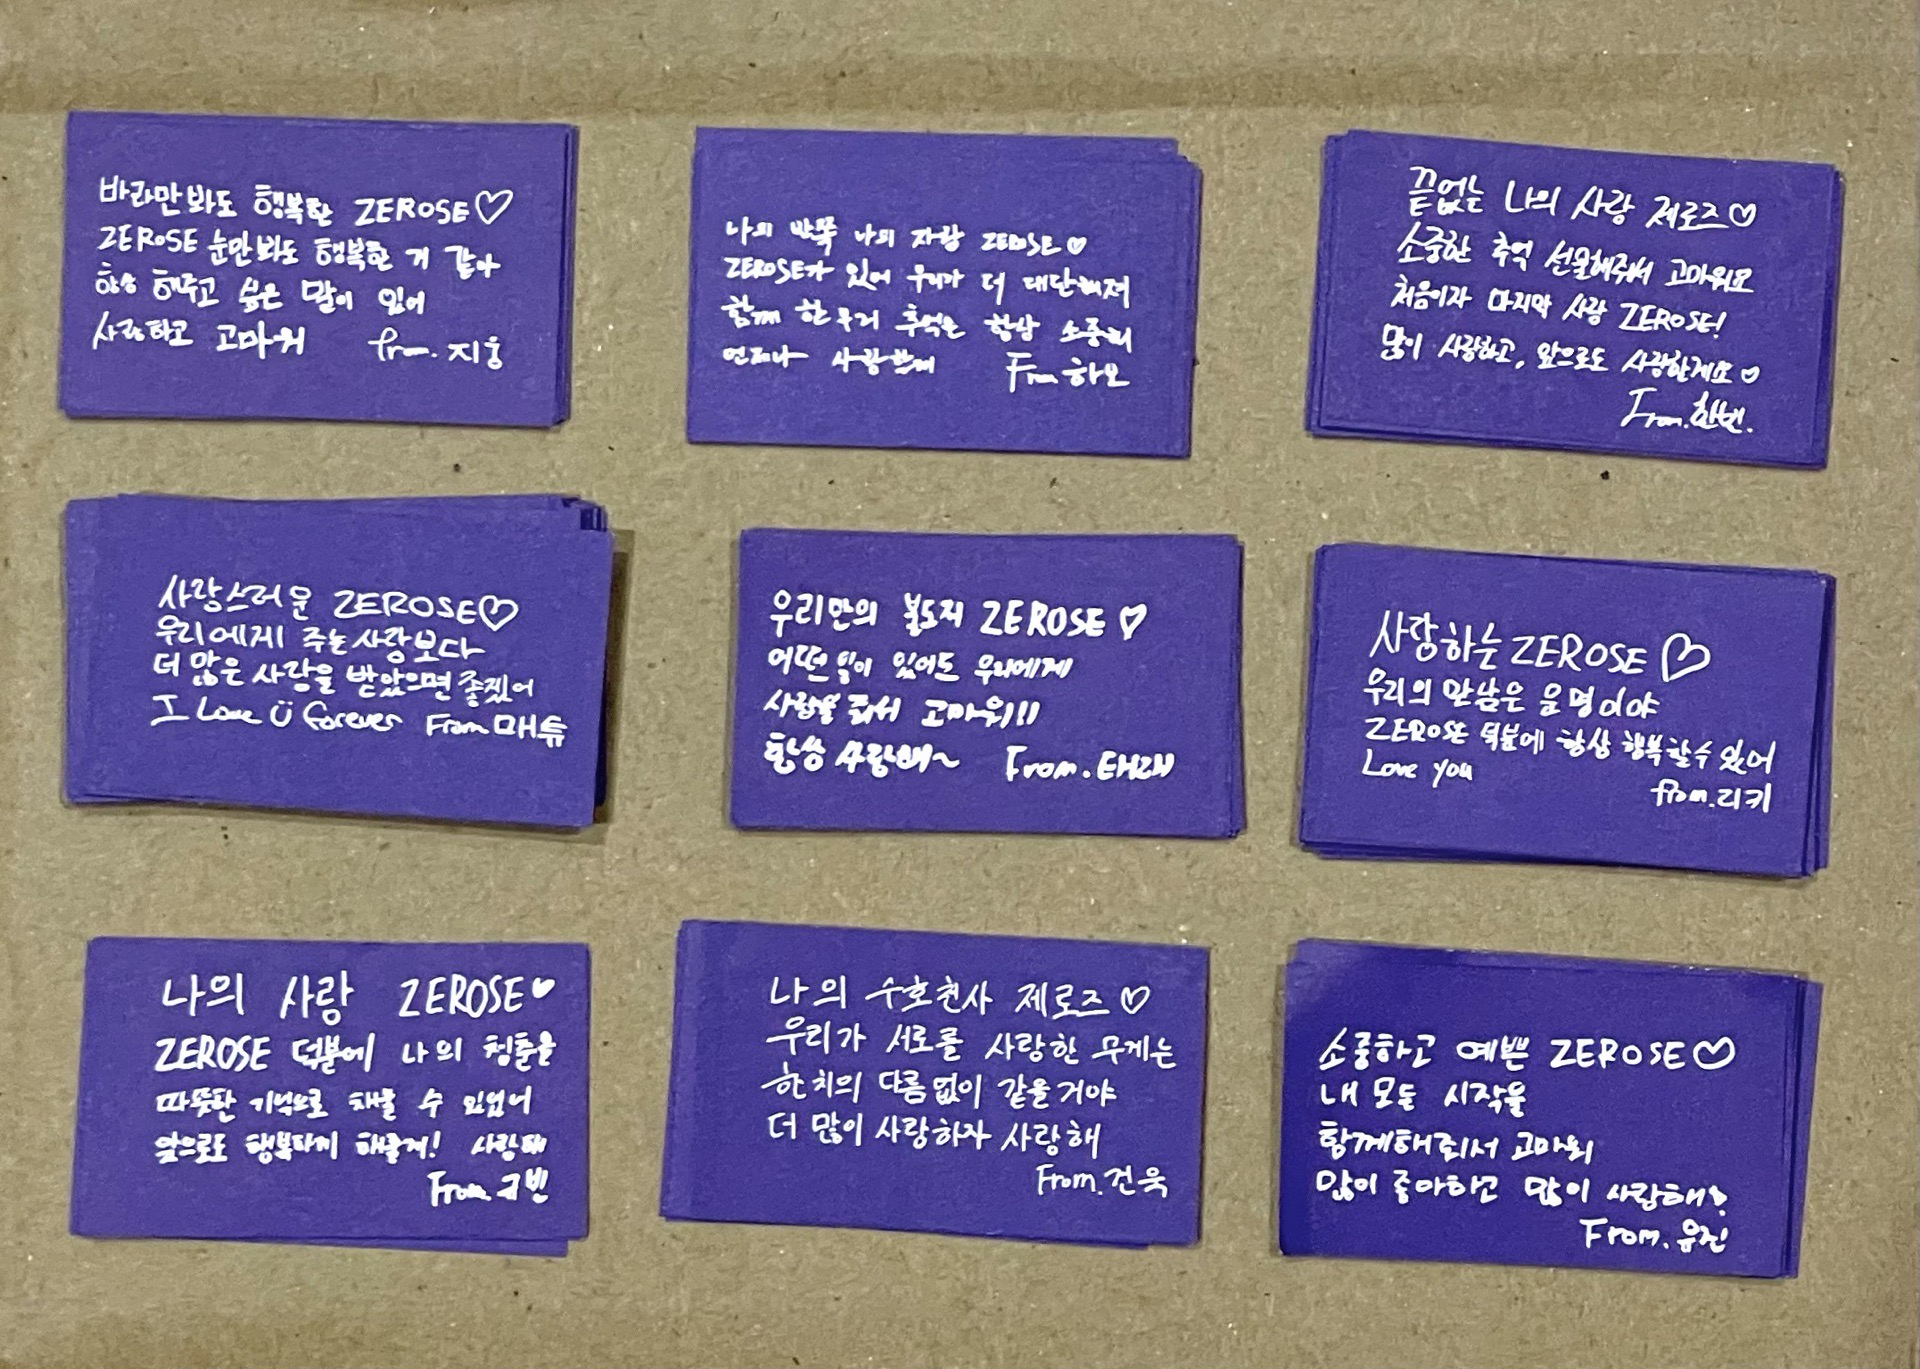 바라만 봐도 행복한 ZEROSE♡
ZEROSE 눈만 봐도 행복한 거 같아
항상 해주고 싶은 말이 있어
사랑하고 고마워 from. 지웅
나의 반쪽 나의 자랑 ZEROSE♡
ZEROSE가 있어 우리가 더 대단해져
함께 한 우리 추억은 항상 소중히
언제나 사랑할게 From 하오
끝없는 나의 사랑 제로즈♡
소중한 추억 선물해줘서 고마워요
처음이자 마지막 사랑 ZEROSE!
많이 사랑하고, 앞으로도 사랑할게요♡
From. 한빈.
사랑스러운 ZEROSE♡
우리에게 주는 사랑보다
더 많은 사랑을 받았으면 좋겠어
I Love U forever From 매튜
우리만의 보도지 ZEROSE♡
어떤 일이 있어도 우리에게
사랑을 줘서 고마워!!
항상 사랑해~ From. 태래
사랑하는 ZEROSE♡
우리의 만남은 운명이야
ZEROSE 덕분에 항상 행복할 수 있어
Love you
from. 리키
나의 사랑 ZEROSE♥
ZEROSE 덕분에 나의 청춘을
따뜻한 기억으로 채울 수 있었어
앞으로도 행복하게 해줄게! 사랑해
From. 규빈
나의 수호천사 제로즈♡
우리가 서로를 사랑한 무게는
한치의 다름없이 같을거야
더 많이 사랑하자 사랑해
From. 건욱
소중하고 예쁜 ZEROSE♡
내 모든 시작을
함께해줘서 고마워
많이 좋아하고 많이 사랑해♡
From. 유진